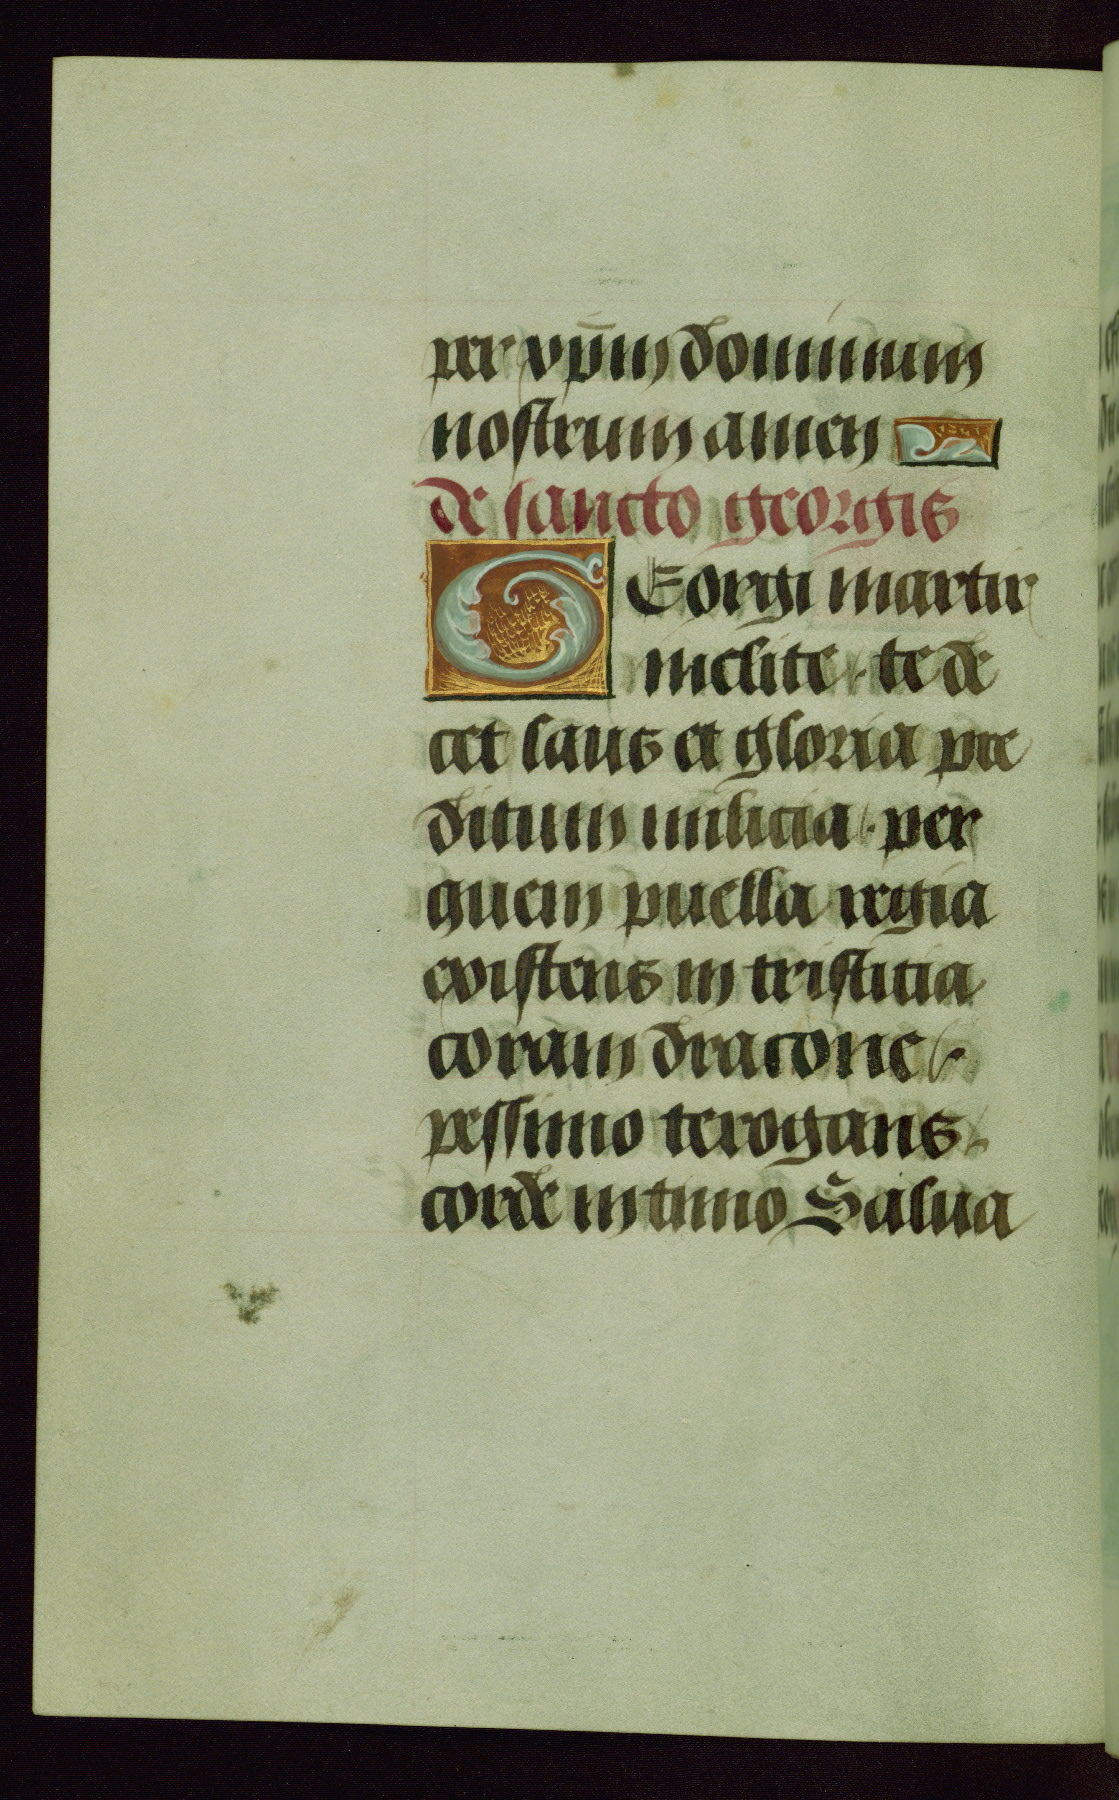 per xp̄um dominum
nostrum amen
de sancto georgis
GEorgi martir
inclite · te de
cet laus et gloria pre
ditum milicia · per
quem puella regia
existens in tristicia
coram dracone
pessimo te rogans ·
corde intimo Salua